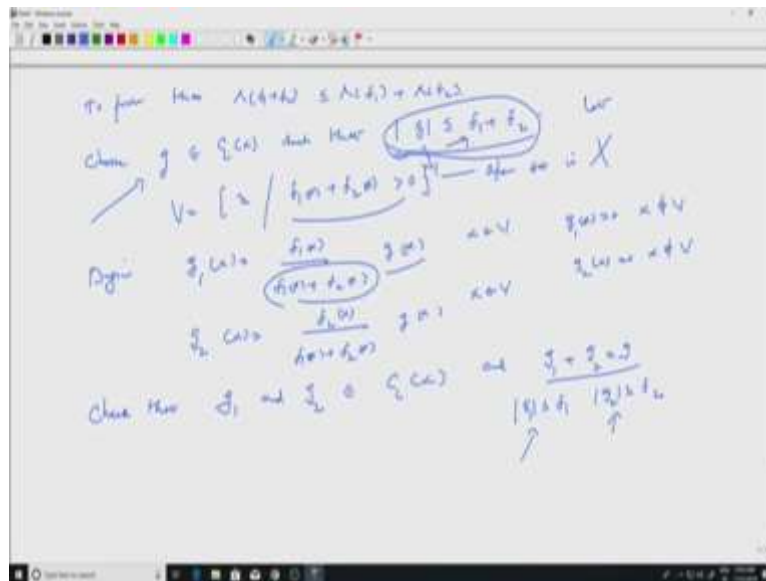 To prove that Λ(f₁+f₂) ≤ Λ(f₁) + Λ(f₂)
Choose g ∈ C_c(X) such that |g| ≤ f₁ + f₂ Let
V = { x / f₁(x) + f₂(x) > 0 } open set in X
Define g₁(x) = f₁(x) / (f₁(x) + f₂(x)) g(x) x ∈ V g₁(x) = 0 x ∉ V
g₂(x) = f₂(x) / (f₁(x) + f₂(x)) g(x) x ∈ V g₂(x) = 0 x ∉ V
Check that g₁ and g₂ ∈ C_c(X) and g₁ + g₂ = g
|g₁| ≤ f₁ |g₂| ≤ f₂